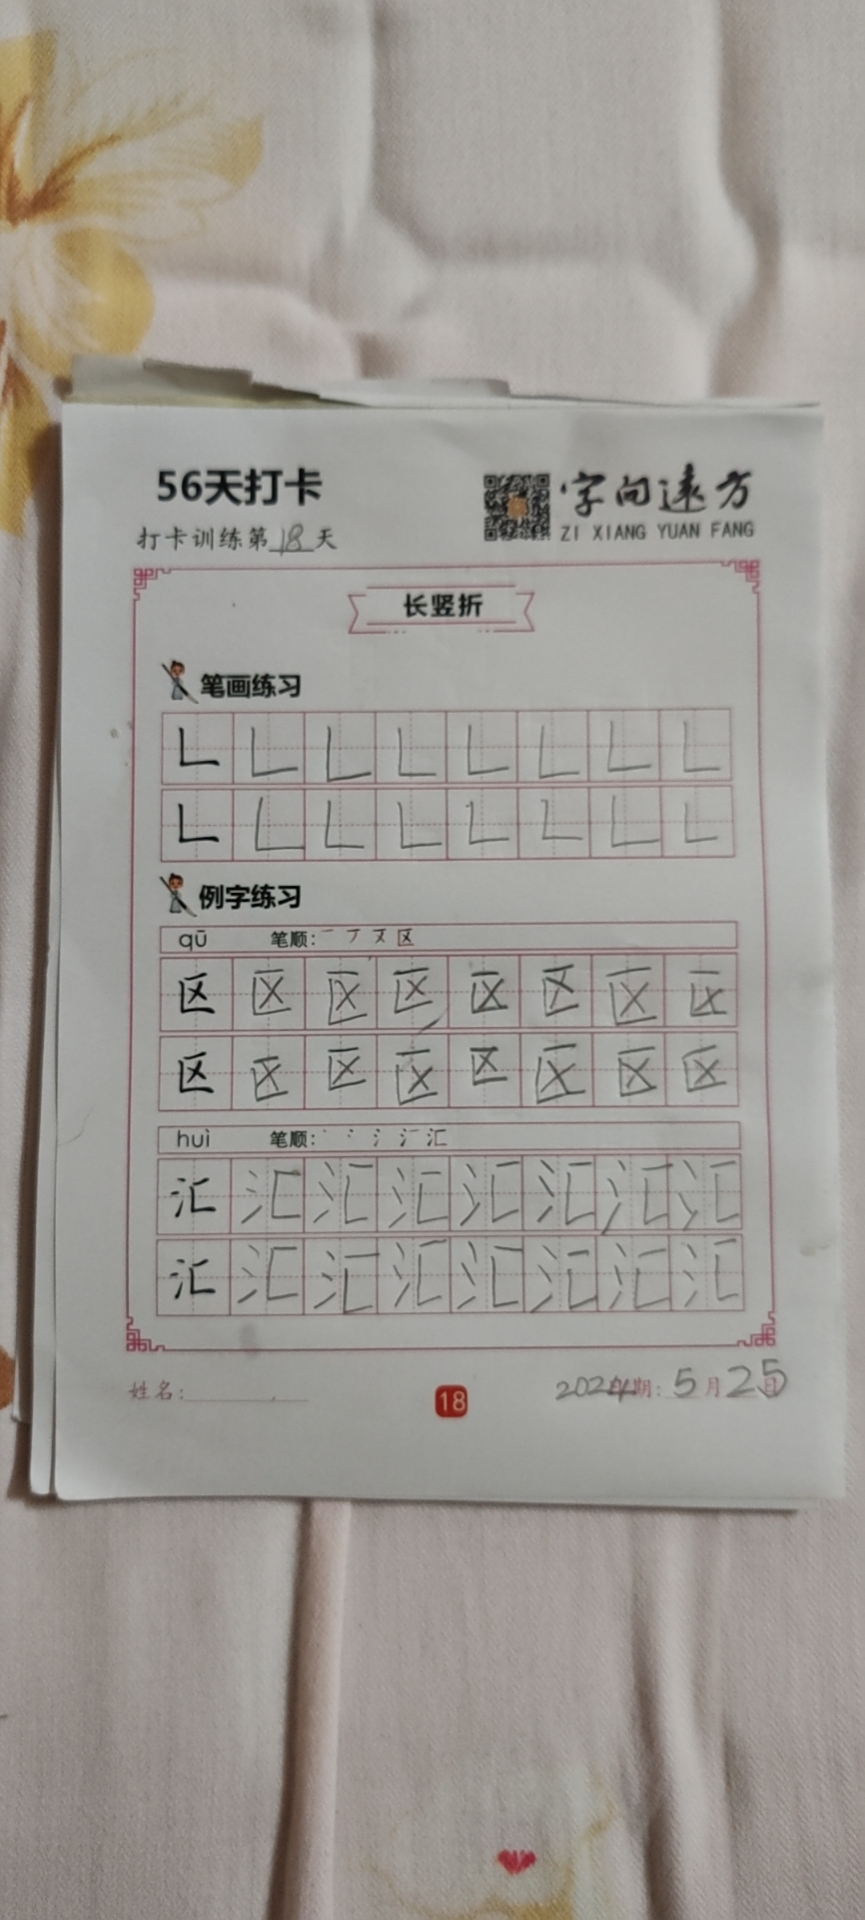 56天打卡
字向远方
ZI XIANG YUAN FANG
打卡训练第18天
长竖折
笔画练习
𠃊 𠃊 𠃊 𠃊 𠃊 𠃊 𠃊 𠃊
𠃊 𠃊 𠃊 𠃊 𠃊 𠃊 𠃊 𠃊
例字练习
qū 笔顺:
区 区 区 区 区 区 区 区
区 区 区 区 区 区 区 区
huì 笔顺:
汇 汇 汇 汇 汇 汇 汇 汇
汇 汇 汇 汇 汇 汇 汇 汇
姓名:
18
2024 日期: 5月25日